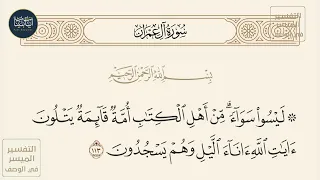 سُورَةُ آلِ عِمْرَانَ
بِسْمِ اللَّهِ الرَّحْمَٰنِ الرَّحِيمِ
۞ لَيْسُوا۟ سَوَآءً ۗ مِّنْ أَهْلِ ٱلْكِتَٰبِ أُمَّةٌ قَآئِمَةٌ يَتْلُونَ
ءَايَٰتِ ٱللَّهِ ءَانَآءَ ٱلَّيْلِ وَهُمْ يَسْجُدُونَ ١١٣
التفسير
الميسر
في الوصف